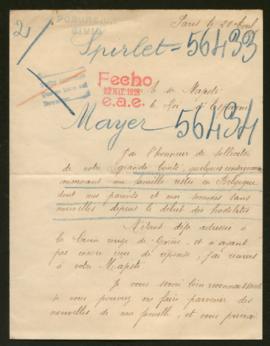 2/
Paris le 20 Avril
Spirlet = 56433
Fecho
e.a.e.
Mayer 56434
J'ai l'honneur de solliciter
de votre grande bonté, quelques renseignements
concernant ma famille restée en Belgique
dont mes parents et nous sommes sans
nouvelles depuis le début des hostilités
M'étant déjà adressée à
la Croix rouge de Genève et n'ayant
pas encore reçu de réponse, j'ai recours
à votre Majesté
Je vous serais bien reconnaissante
si vous pouviez me faire parvenir des
nouvelles de ma famille, et vous